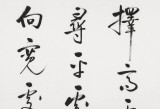 擇高處
尋平處
向寬處